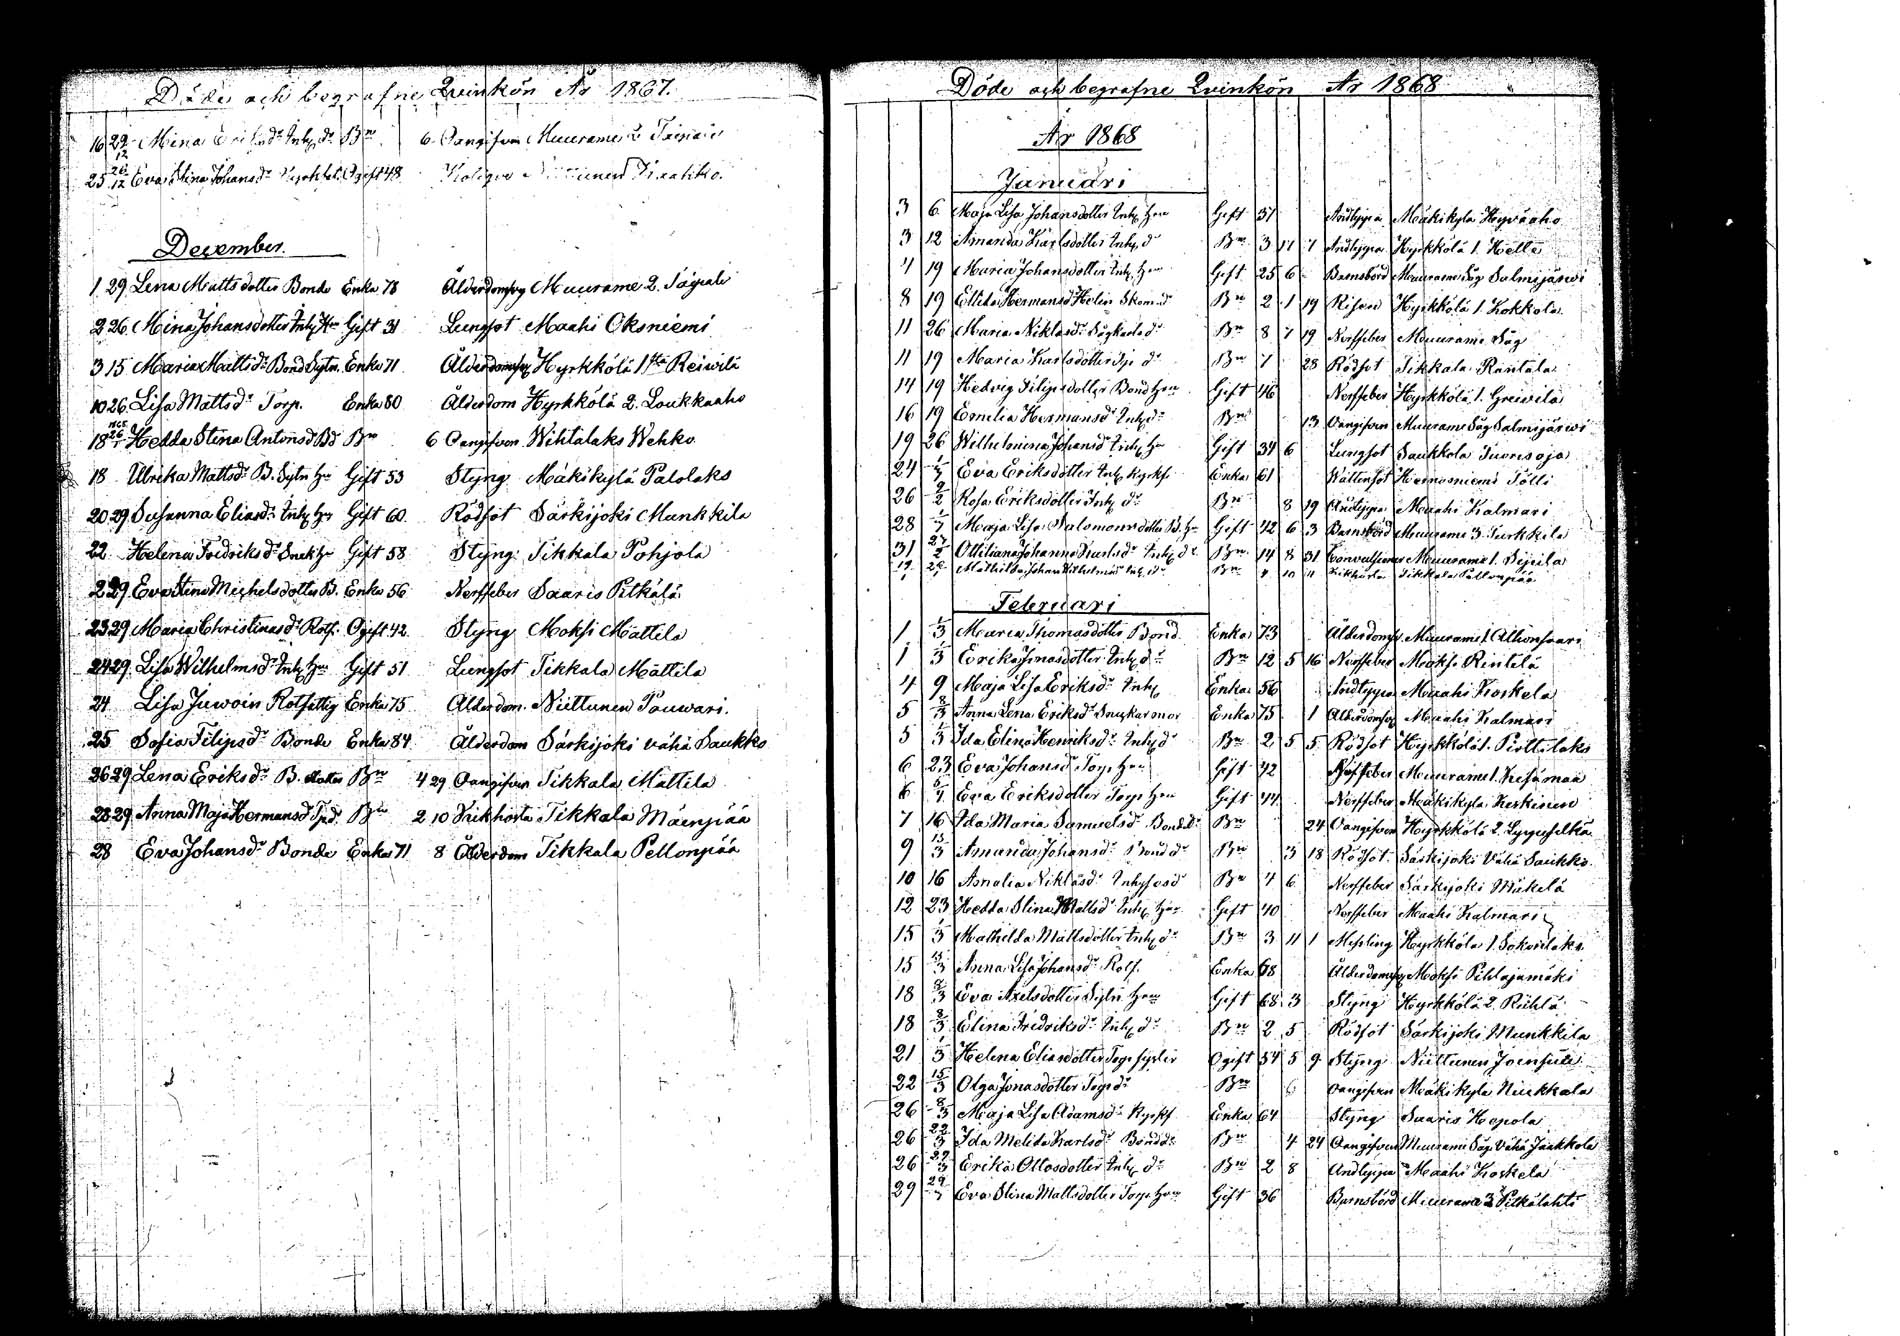 Döde och begrafne Qvinkön År 1867.
16 29/12 Mina Inhs dr Brn 6 Oangifven Muurame 2
25 26/12 Eva Stina Johansdr Ogift 48 Niittunen Kaakko
December.
1 29 Lena Mattsdotter Bonde Enka 78 Ålderdomsvg Muurame 2.
2 26 Mina Johansdotter Inhs Hru Gift 31 Lungsot Maahi Oksniemi
3 15 Maria Mattsdr Bond Sytn. Enka 71 Ålderdomsvg Kyrkkölä 1 Reiwilä
10 26 Lisa Mattsdr Torp. Enka 80 Ålderdom Kyrkkölä 2. Loukkaaho
18 1868 26/1 Hedda Stina Antonsdr Bd Brn 6 Oangifven Wihtalaks Wehko
18 Ulrika Mattsdr B. Sytn Hru Gift 53 Styng Mäkikylä Palolaks
20 29 Susanna Eliasdr Inhs Hru Gift 60 Rödsot Särkijoki Munkkila
22 Helena Fredriksdr Snek Hr Gift 58 Styng Tikkala Pohjola
22 29 Eva Stina Michelsdotter B. Enka 56 Nerffeber Saaris Pitkälä
23 29 Maria Christinasdr Rotf. Ogift 42 Styng Moksi Mattila
24 29 Lisa Wilhelmsdr Inhs Hru Gift 51 Lungsot Tikkala Mattila
24 Lisa Juwoin Rotfattig Enka 75 Ålderdom. Niittunen Pauwari.
25 Sofia Filipsdr Bonde Enka 84 Ålderdom Särkijoki vähä Saukko
26 29 Lena Eriksdr B. dotter Brn 4 29 Oangifven Tikkala Mattila
28 29 Anna Maja Hermansd Tpd. Brn 2 10 Kikhosta Tikkala Mäenpää
28 Eva Johansdr Bonde Enka 71 8 Ålderdom Tikkala Pellonpää
Döde och begrafne Qvinkön År 1868
År 1868
Januari
3 6 Maja Lisa Johansdotter Inhs Hru Gift 37 Nödtyppa Mäkikylä Hyväaho
3 12 Amanda Karlsdotter Inhs d Brn 3 11 7 Andtyppa Kyrkkölä 1. Helle
7 19 Maria Johansdotter Inhs Hru Gift 25 6 Barnsbörd Muurame Såg Salmijärwi
8 19 Ellida Hermansd Helin Skom.d Brn 2 1 19 Risen Kyrkkölä 1. Kokkola
11 26 Maria Niklasdr Sågkarls dr Brn 8 7 19 Nerffeber Muurame Såg
11 19 Maria Karlsdotter Tp dr Brn 1 28 Rödsot Tikkala Rantala
14 19 Hedvig Filipsdotter Bond Hru Gift 46 Nerffeber Kyrkkölä 1. Greiwilä
16 19 Emelia Hermansdr Inhs dr Brn 13 Oangifven Muurame Såg Salmijärwi
19 26 Wilhelmina Johansd Inhs Hr Gift 34 6 Lungsot Saukkola Tuorisoja
24 Eva Eriksdotter Inhs Kyrkf. Enka 61 Wattensot Hernosniemi Tölli
26 9/2 Rosa Eriksdotter Inhs dr Brn 8 19 Andtyppa Maahi Kalmari
28 Maja Lisa Salomonsdotter B. Hr Gift 42 6 3 Barnsbörd Muurame 3 Turkkila
31 Ottiliana Johanna Karlsdr Inhs dr Brn 14 8 31 Convulsioner Muurame 1. Sipila
19 26/1 Mathilda Johan Wilhelmsdr Inhs dr Brn Kikhosta Tikkala Pellonpää
Februari
1 1/3 Maria Thomasdotter Bond Enka 73 Ålderdomsv. Muurame 1
1 1/3 Erika Jonasdotter Inhs dr Brn 12 5 16 Nerffeber Moksi Rintelä
4 9 Maja Lisa Eriksdr Inhs Enka 56 Nödtyppa Maahi Koskela
5 8/3 Anna Lena Eriksdr Snickarmor Enka 75 1 Ålderdomsvg Maahi Kalmari
5 1/3 Ida Elina Henriksdr Inhs dr Brn 2 5 5 Rödsot Kyrkkölä 1. Perttulaks
6 23 Eva Johansdr Torp Hru Gift 42 Nerffeber Muurame 1. Kesämaa
6 Eva Eriksdotter Torp Hru Gift 44 Nerffeber Mäkikylä Keskinen
7 16 Ida Maria Samuelsdr Bond.dr Brn 24 Oangifven Kyrkkölä 2. Lyyyselkä
9 15/3 Amanda Johansdr Bond dr Brn 3 18 Rödsot Särkijoki Vähä Saukko
10 16 Amalia Niklasdr Inhyses d Brn 4 6 Nerffeber Särkijoki Mikelä
12 23 Hedda Stina Mattsdr Inhs Hru Gift 40 Nerffeber Maahi Kalmari
15 1/3 Mathilda Mattsdotter Inhs dr Brn 3 11 1 Messling Kyrkkölä 1. Sokurilaks
15 15/3 Anna Lisa Johansdr Rotf. Enka 68 Ålderdomsvg Moksi Pihlajamäki
18 8/3 Eva Axelsdotter Sytn Hru Gift 68 3 Styng Kyrkkölä 2. Riihlä
18 8/3 Elina Fredriksdr Inhs dr Brn 2 5 Rödsot Särkijoki Munkkila
21 1/3 Helena Eliasdotter Torp Ogift 54 5 9 Styng Niittunen Joensuu
22 15/3 Olga Jonasdotter Torp dr Brn 6 Oangifven Mäkikylä Niukkala
26 8/3 Maja Lisa Adamsdr Kyrkf Enka 64 Styng Saaris Hopola
26 22/3 Ida Melida Karlsdr Bond dr Brn 4 24 Oangifven Muurame Såg Vähä Jaakkola
26 29/3 Erika Ottosdotter Inhs dr Brn 2 8 Andtyppa Maahi Koskela
29 Eva Stina Mattsdotter Torp. Hru Gift 36 Barnsbörd Muurame 3 Pitkälahti